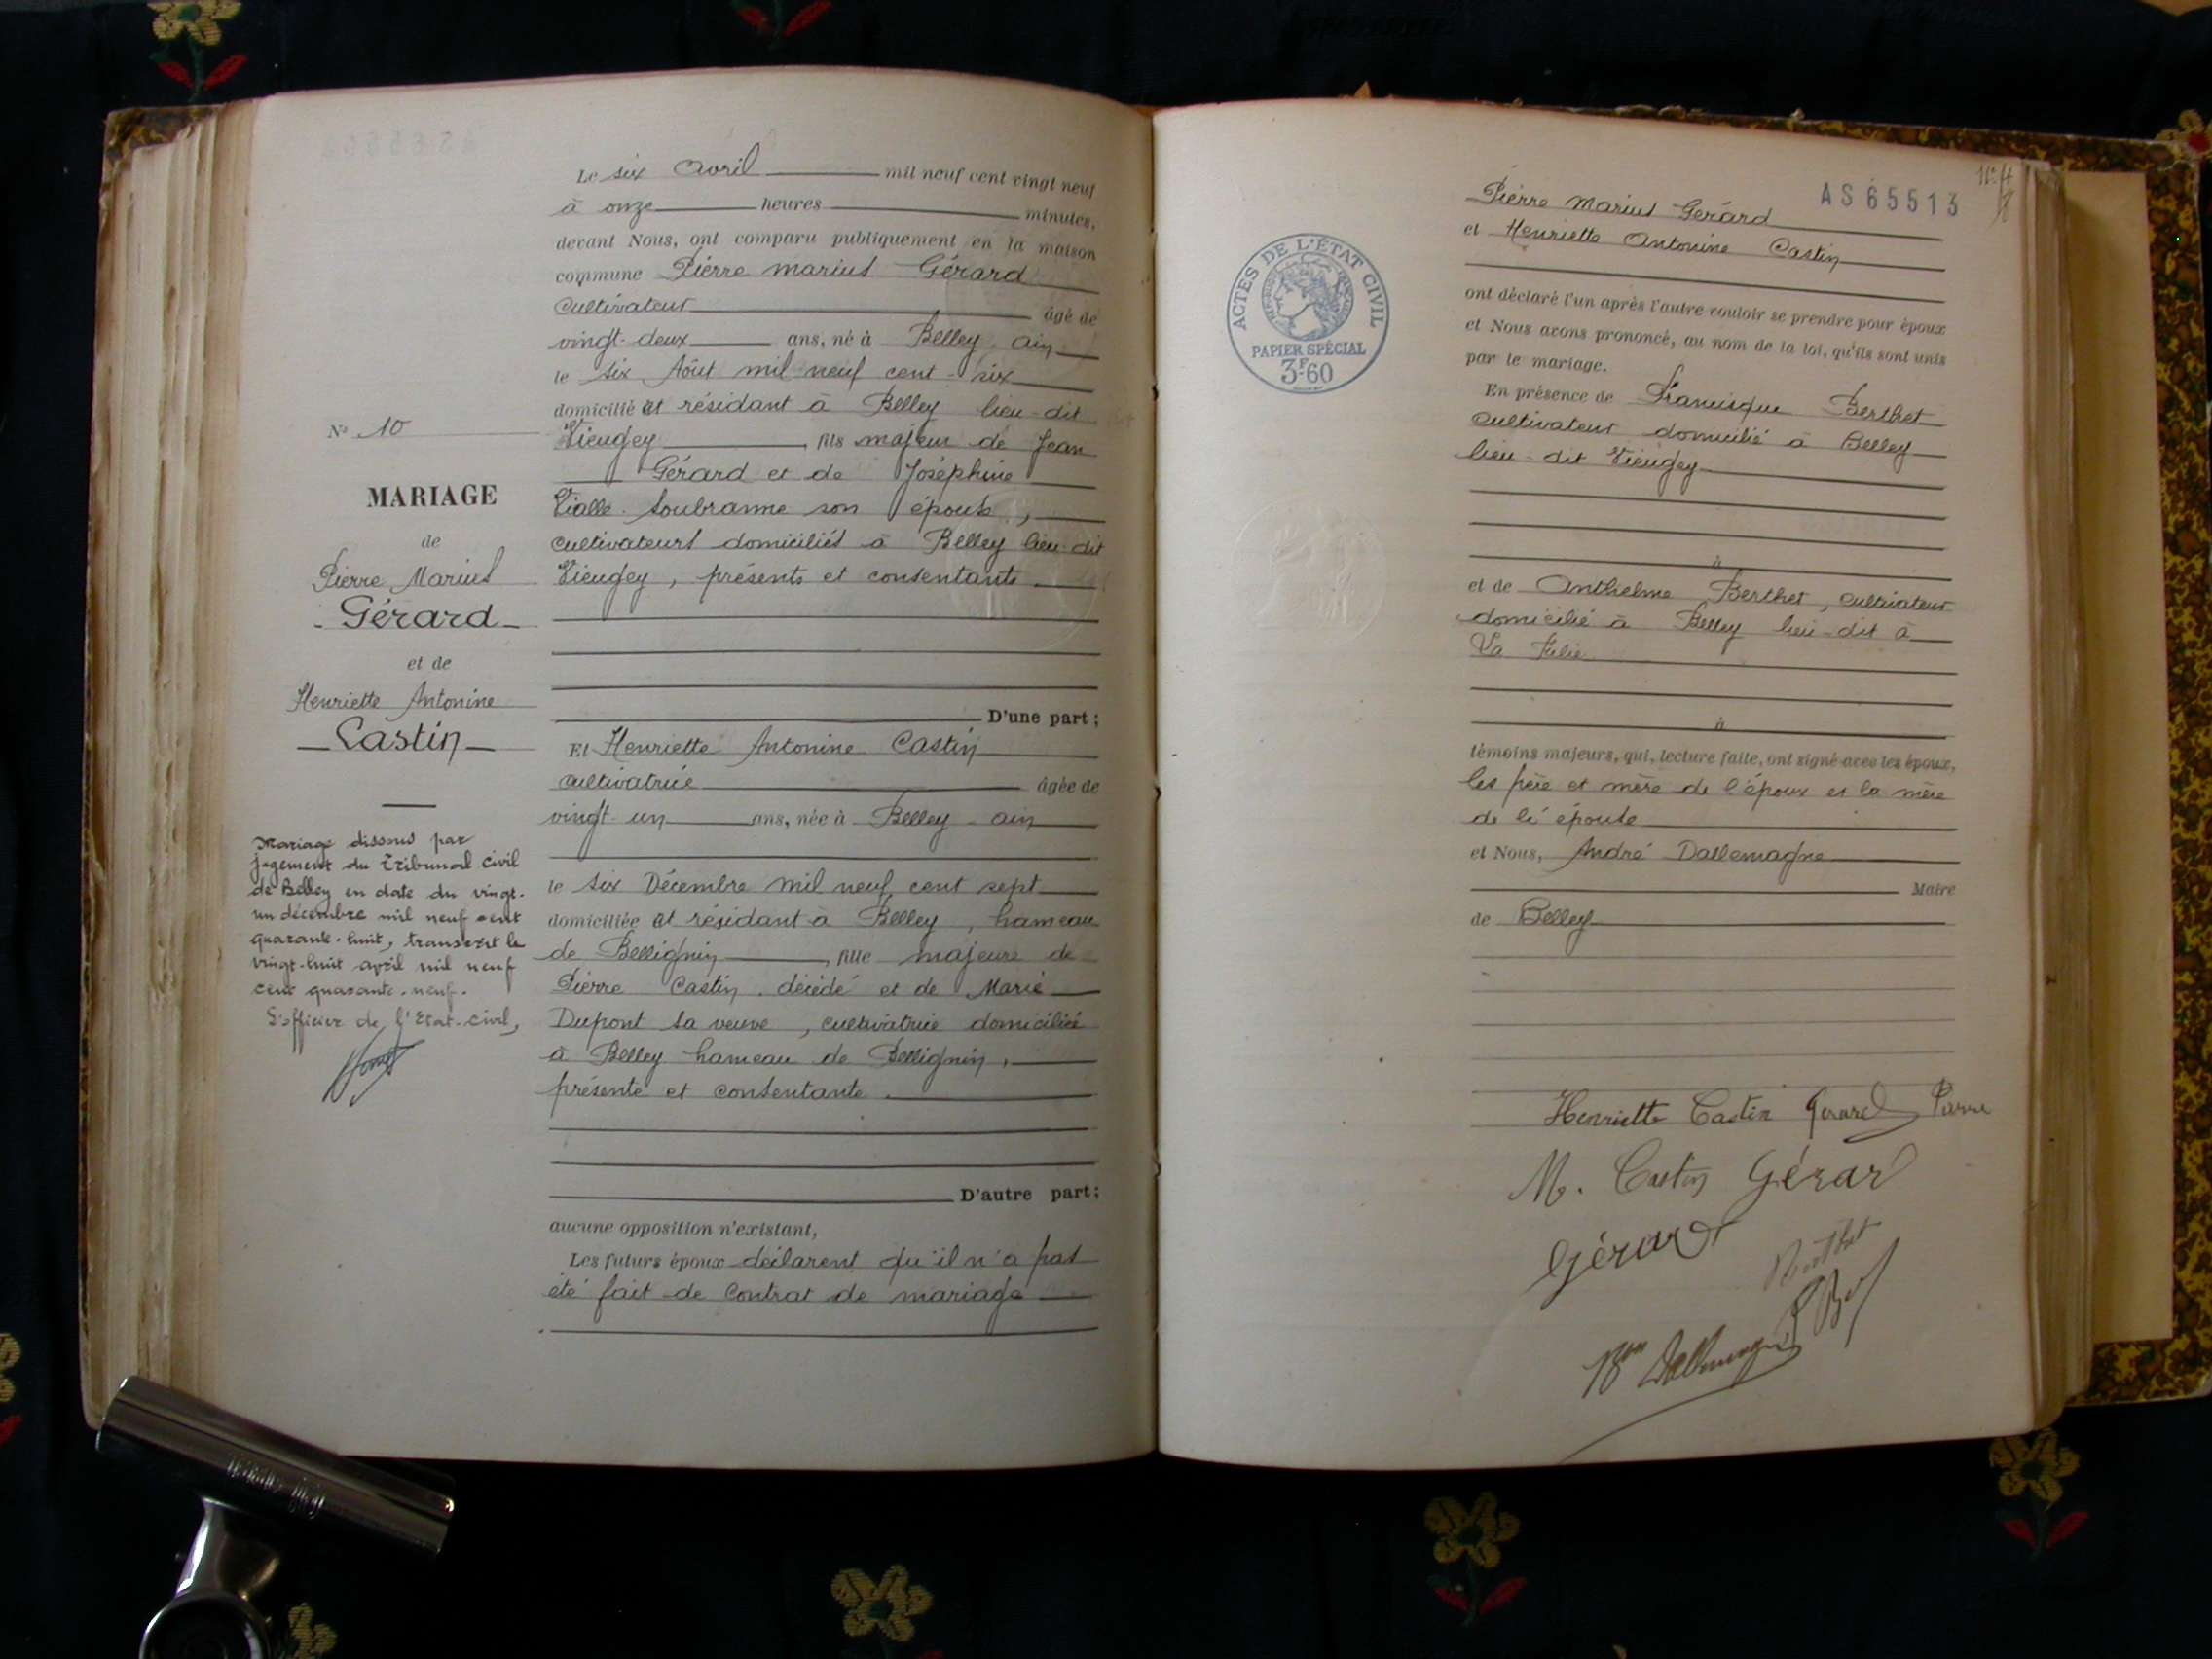 N° 10
MARIAGE
de
Pierre Marius
Gérard
et de
Henriette Antonine
Castin
Mariage dissous par
jugement du Tribunal civil
de Belley en date du vingt-
un décembre mil neuf cent
quarante-huit, transcrit le
vingt-huit avril mil neuf
cent quarante-neuf.
L'officier de l'Etat-civil,
Le six Avril mil neuf cent vingt neuf
à onze heures minutes,
devant Nous, ont comparu publiquement en la maison
commune Pierre Marius Gérard
cultivateur âgé de
vingt-deux ans, né à Belley Ain
le six Août mil neuf cent six
domicilié et résidant à Belley lieu-dit
Vieugey fils majeur de Jean
Gérard et de Joséphine
Vialle-Soubranne son épouse,
cultivateurs domiciliés à Belley lieu-dit
Vieugey, présents et consentants
D'une part;
Et Henriette Antonine Castin
cultivatrice âgée de
vingt-un ans, née à Belley - Ain
le six Décembre mil neuf cent sept
domiciliée et résidant à Belley, hameau
de Bellignin, fille majeure de
Pierre Castin, décédé et de Marie
Dupont sa veuve, cultivatrice domiciliée
à Belley hameau de Bellignin,
présente et consentante.
D'autre part;
aucune opposition n'existant,
Les futurs époux déclarent qu'il n'a pas
été fait de contrat de mariage
AS 65513
ACTES DE L'ÉTAT CIVIL
PAPIER SPÉCIAL
3F60
Pierre Marius Gérard
et Henriette Antonine Castin
ont déclaré l'un après l'autre vouloir se prendre pour époux
et Nous avons prononcé, au nom de la loi, qu'ils sont unis
par le mariage.
En présence de Francisque Berthet
cultivateur domicilié à Belley
lieu-dit Vieugey
à
et de Anthelme Berthet, cultivateur
domicilié à Belley lieu-dit à
à
témoins majeurs, qui, lecture faite, ont signé avec les époux,
les père et mère de l'époux et la mère
de l'épouse
et Nous, André Dallemagne
Maire
de Belley
Henriette Castin Gerard Pierre
M. Castin Gérar
Gérard
Berthet
Bon Dallemagne